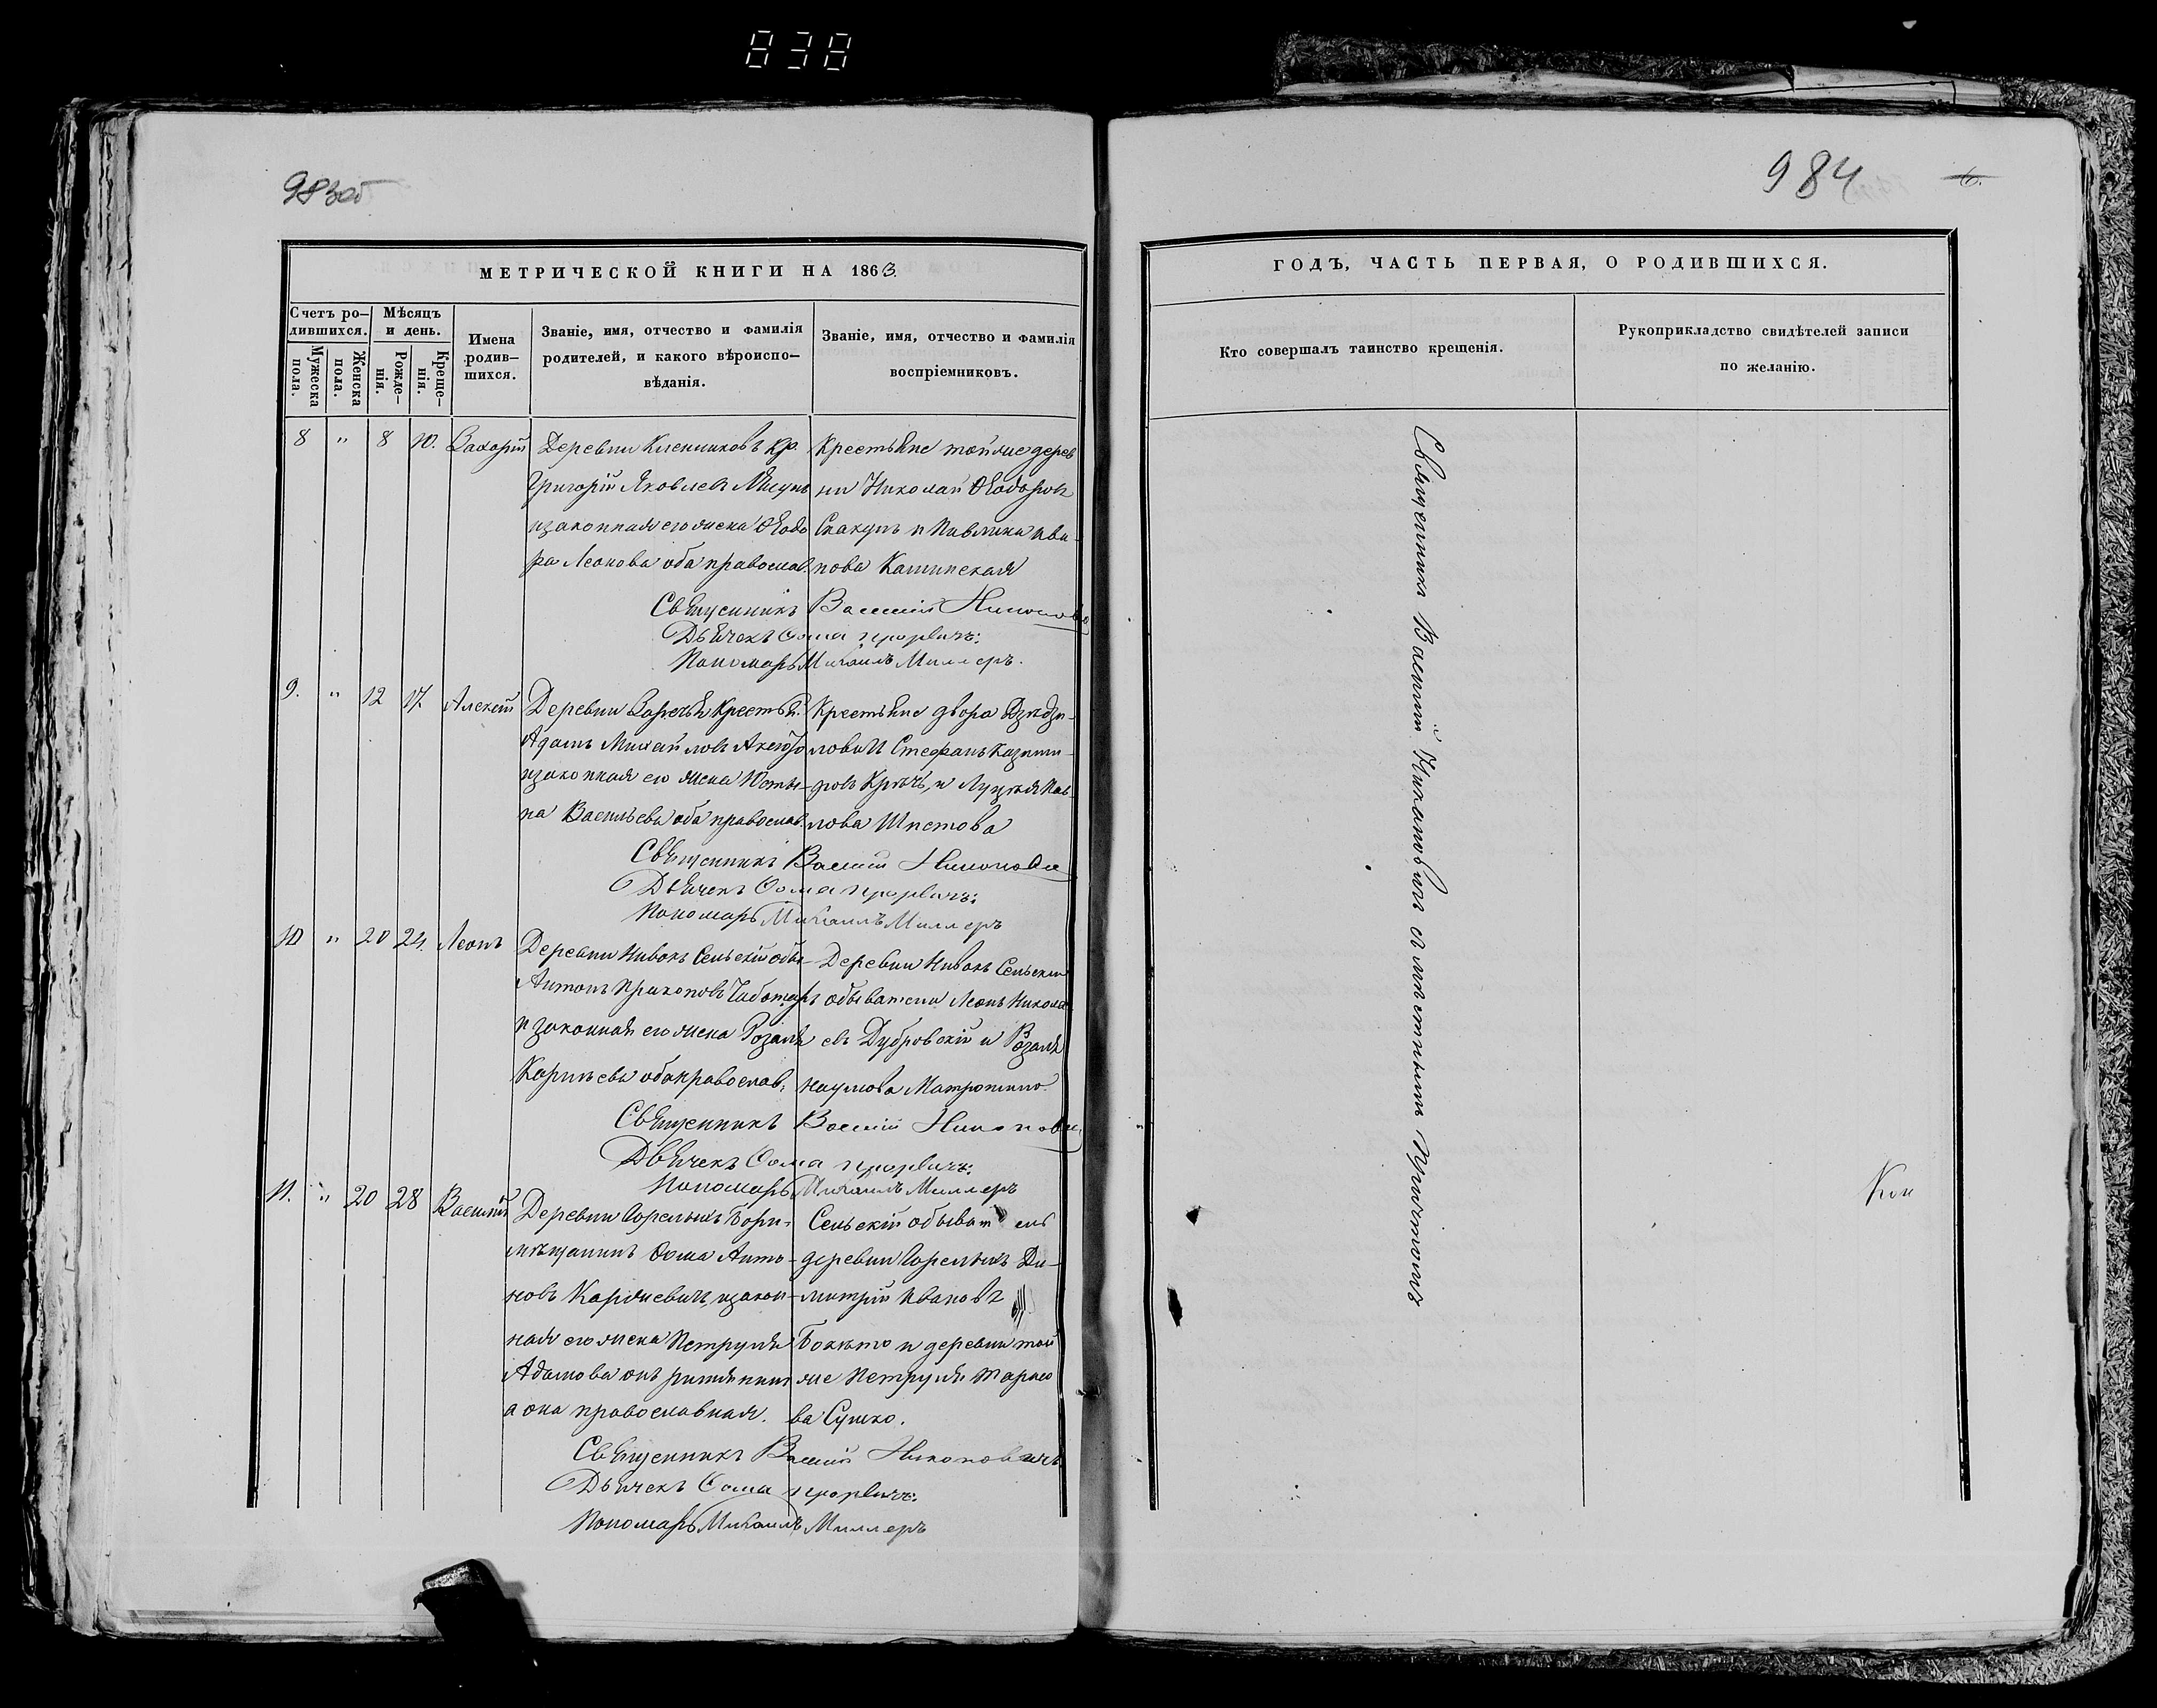 838
983об
984
6.
МЕТРИЧЕСКОЙ КНИГИ НА 1863
ГОДЪ, ЧАСТЬ ПЕРВАЯ, О РОДИВШИХСЯ.
Счетъ ро-
дившихся.
Мужеска
пола.
Женска
пола.
Мѣсяцъ
и день.
Рожде-
нія.
Креще-
нія.
Имена
родив-
шихся.
Званіе, имя, отчество и фамилія
родителей, и какого вѣроиспо-
вѣданія.
Званіе, имя, отчество и фамилія
воспріемниковъ.
Кто совершалъ таинство крещенія.
Рукоприкладство свидѣтелей записи
по желанію.
8 " 8 10. Захарій
Деревни Кр.
Григорій Яковлевъ
и законная его жена Ѳеодо
ра Леонова оба православ.
Крестьяне той же дерев
ни Николай Ѳеодоровъ
Скакунъ и Павлина Ива-
нова Калинская
Священникъ Василій Никоновичъ
Дьячекъ Ѳома
Пономарь Михаилъ Миллеръ.
9. " 12 17. Алексій
Деревни Зарѣчья Крестья.
Адамъ Михайловъ
и законная его жена Юсты-
на Васильева оба православ.
Крестьяне двора
Стефанъ Казими-
ровъ Крючъ, и Луція Пав-
лова Шпетова
Священникъ Василій Никоновичъ
Дьячекъ Ѳома
Пономарь Михаилъ Миллеръ
10 " 20 24. Леонъ
Деревни Нивокъ Сельскій обы-
Антонъ Прокоповъ Чеботарь
и законная его жена Розалія
оба православ.
Деревни Нивокъ Сельскіи
обыватели Леонъ Никола
евъ Дубровскій и Розалія
Наумова
Священникъ Василій Никоновичъ
Дьячекъ Ѳома
Пономарь Михаилъ Миллеръ
11. " 20 28 Василій
Деревни Борис.
мѣщанинъ Ѳома Анто-
новъ и закон-
ная его жена Петруля
Адамова онъ римлянинъ
а она православная.
Сельскій обыватель
деревни Ди-
митрій Ивановъ
и деревни той
же Петруля Тарасо
ва Сушко.
Священникъ Василій Никоновичъ
Дьячекъ Ѳома
Пономарь Михаилъ Миллеръ
Священникъ Василій Никоновичъ съ мѣстнымъ Причтомъ
Кон